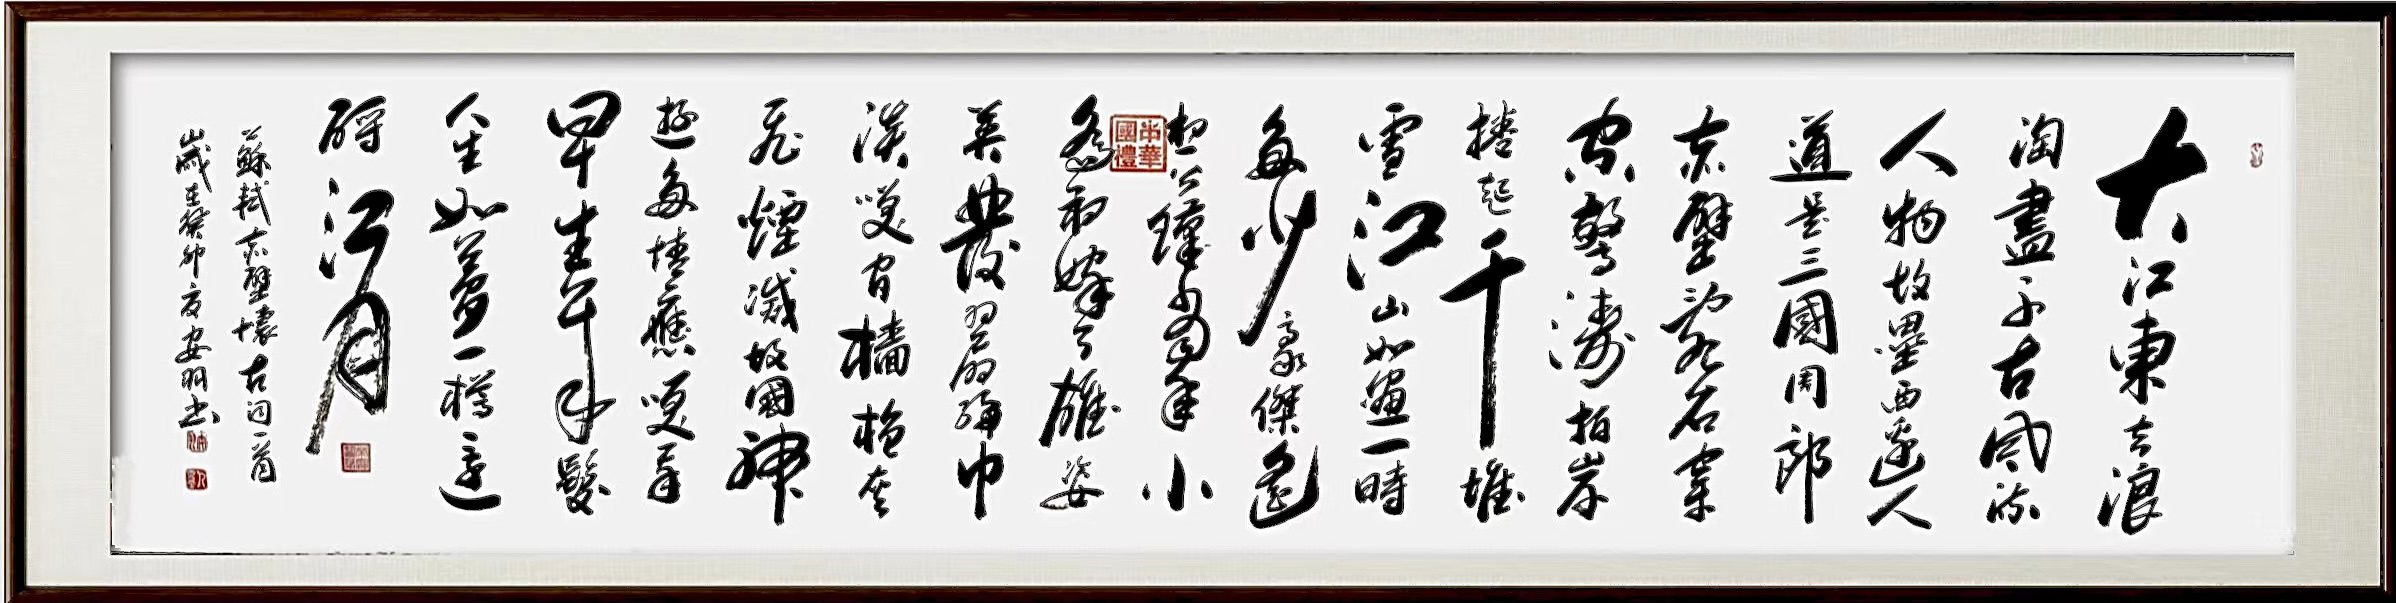 大江東去浪
淘盡千古風流
人物故壘西邊人
道是三國周郎
赤壁亂石穿
空驚濤拍岸
捲起千堆
雪江山如畫一時
多少豪傑遙
想公瑾當年小
喬初嫁了雄姿
英發羽扇綸巾
談笑間檣櫓灰
飛煙滅故國神
遊多情應笑我
早生華髮
人生如夢一樽還
酹江月
蘇軾赤壁懷古詞一首
歲在癸卯夏安羽書
中華國禮